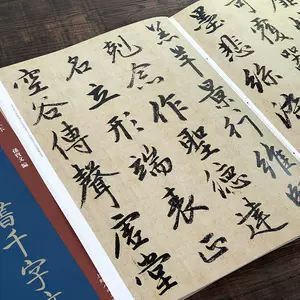 可覆
墨悲絲染
羔羊景行維
剋念作聖德建
名立形端表正
空谷傳聲虛堂
書千字
孫寶文 編